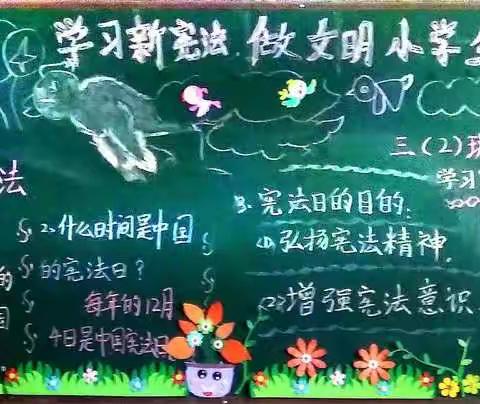 学习新宪法.做文明小学生
三(2)班
学习
法
的
国
2、什么时间是中国
的宪法日？
每年的12月
4日是中国宪法日
3.宪法日的目的:
(1)弘扬宪法精神.
(2)增强宪法意识